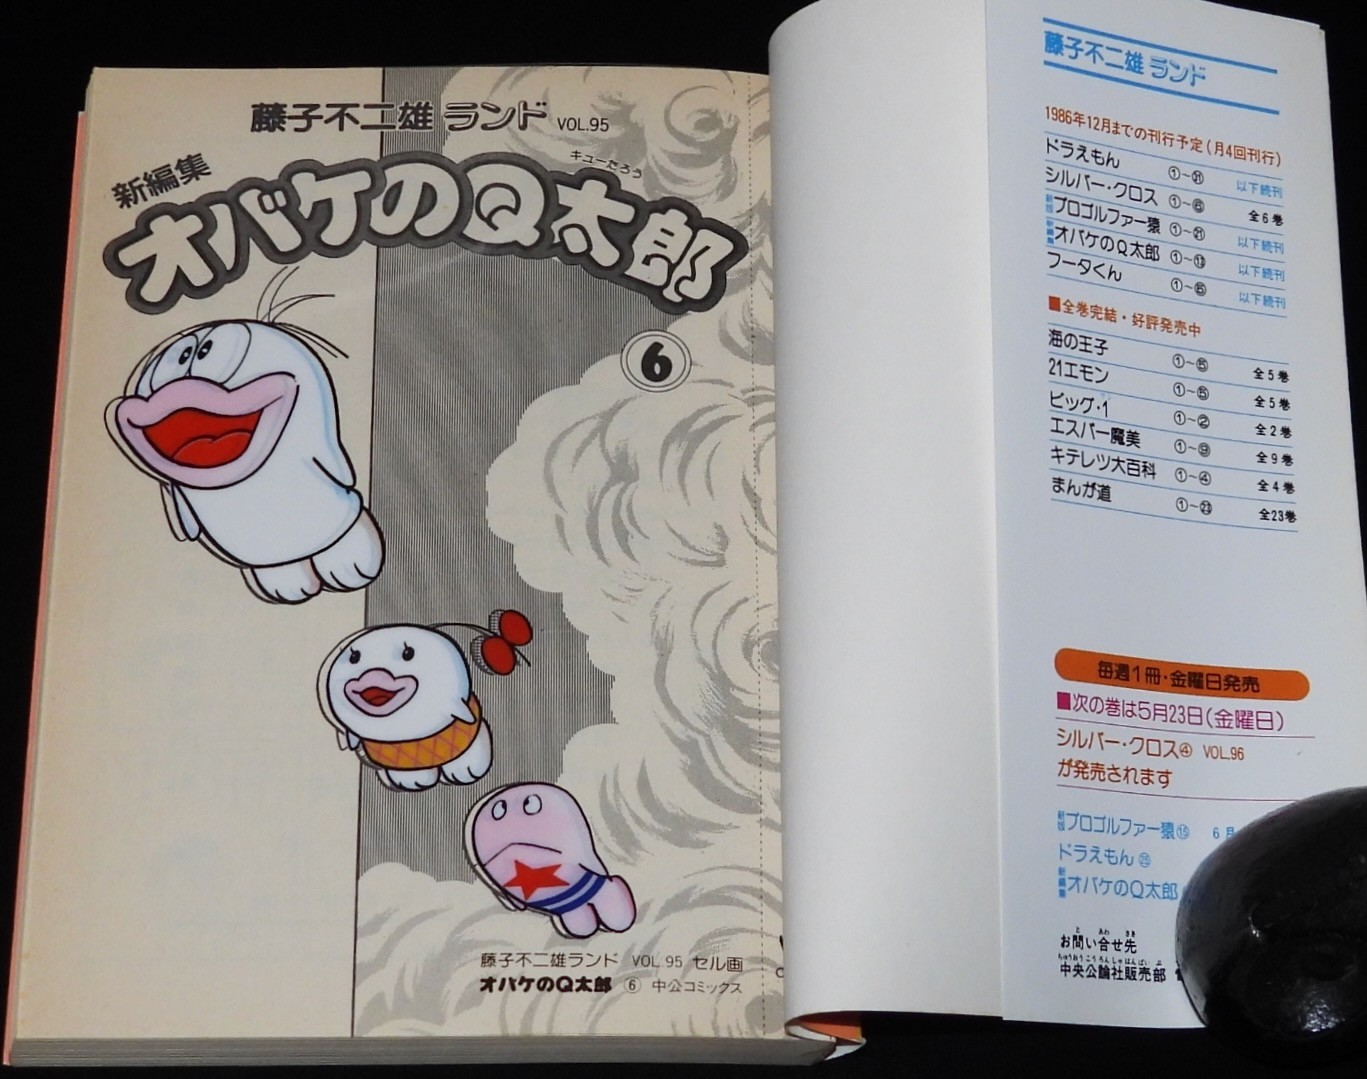 藤子不二雄ランド VOL.95
新編集
キューたろう
オバケのQ太郎
6
藤子不二雄ランド VOL.95 セル画
オバケのQ太郎 ⑥ 中公コミックス
藤子不二雄ランド
1986年12月までの刊行予定(月4回刊行)
ドラえもん ①~㉛ 以下続刊
シルバー・クロス ①~⑥ 全6巻
新版 プロゴルファー猿 ①~㉑ 以下続刊
新編集 オバケのQ太郎 ①~⑬ 以下続刊
フータくん ①~⑤ 以下続刊
■全巻完結・好評発売中
海の王子 ①~⑤ 全5巻
21エモン ①~⑤ 全5巻
ビッグ・1 ①~② 全2巻
エスパー魔美 ①~⑨ 全9巻
キテレツ大百科 ①~④ 全4巻
まんが道 ①~㉓ 全23巻
毎週1冊・金曜日発売
■次の巻は5月23日(金曜日)
シルバー・クロス④ VOL.96
が発売されます
新版 プロゴルファー猿⑮ 6月
ドラえもん
新編集 オバケのQ太郎
お問い合せ先
中央公論社販売部